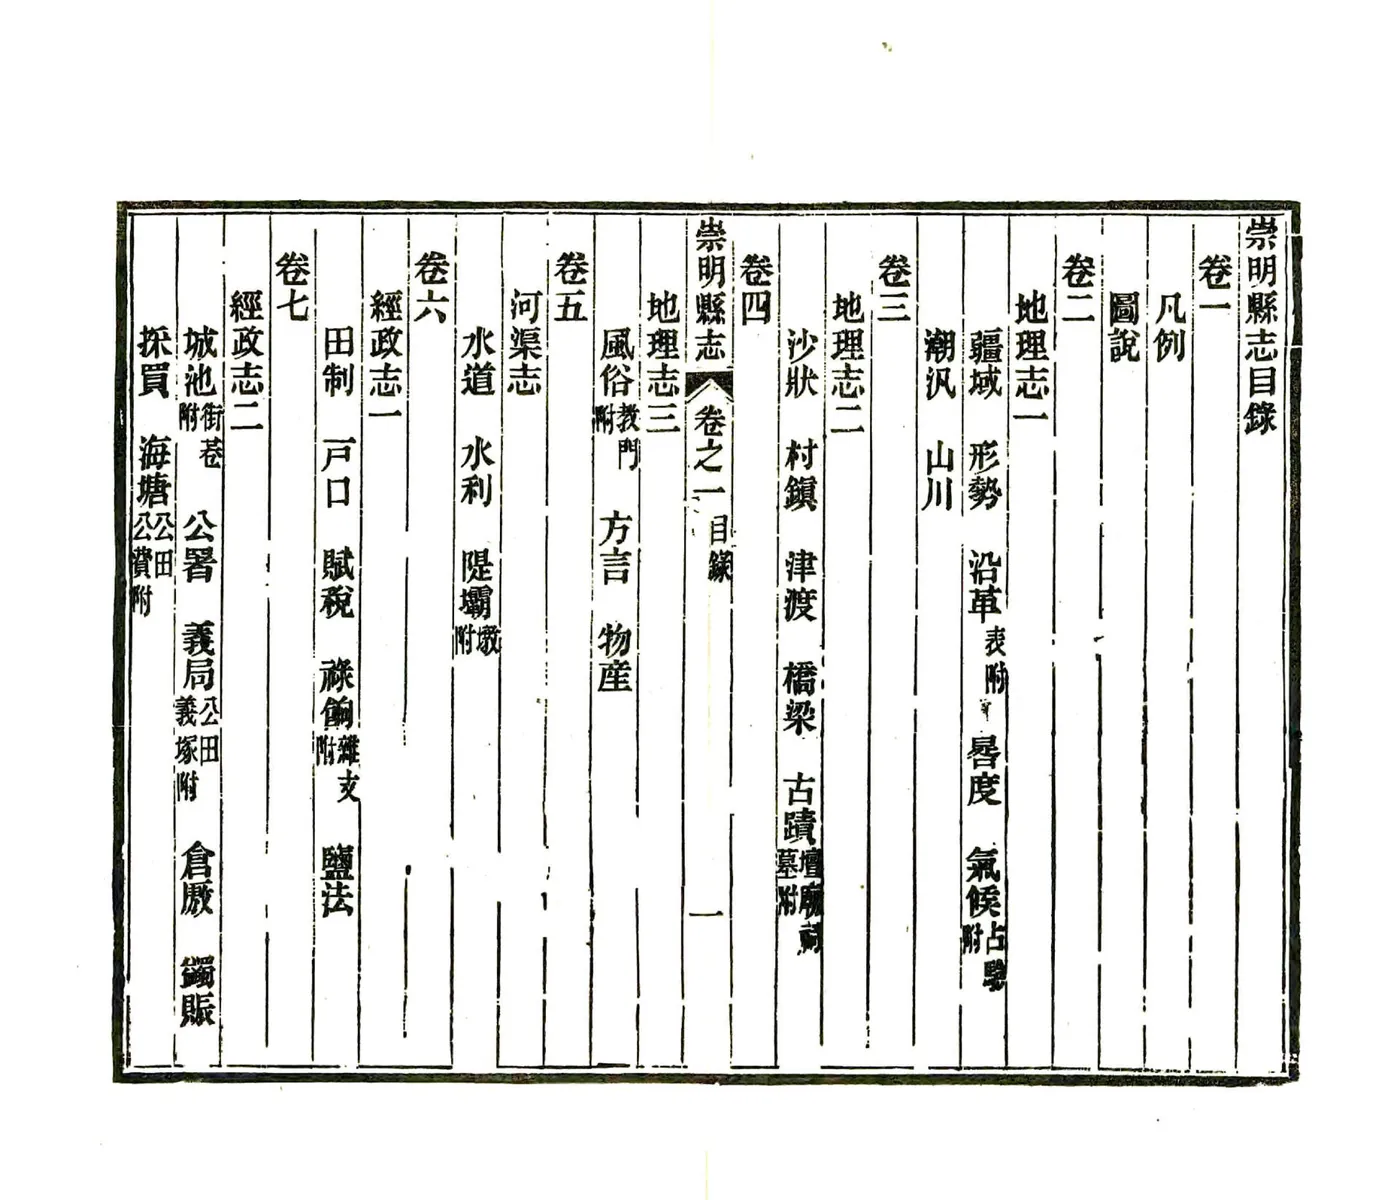 崇明縣志目錄
卷一
凡例
圖說
卷二
地理志一
疆域 形勢 沿革表附 晷度 氣候占驗附
潮汛 山川
卷三
地理志二
沙狀 村鎭 津渡 橋梁 古蹟壇廟祠墓附
卷四
崇明縣志 卷之一 目錄 一
地理志三
風俗教門附 方言 物産
卷五
河渠志
水道 水利 隄壩墩附
卷六
經政志一
田制 戸口 賦稅 祿餉雜支附 鹽法
卷七
經政志二
城池街巷附 公署 義局公田義塚附 倉厫 蠲賑
採買 海塘公田公費附